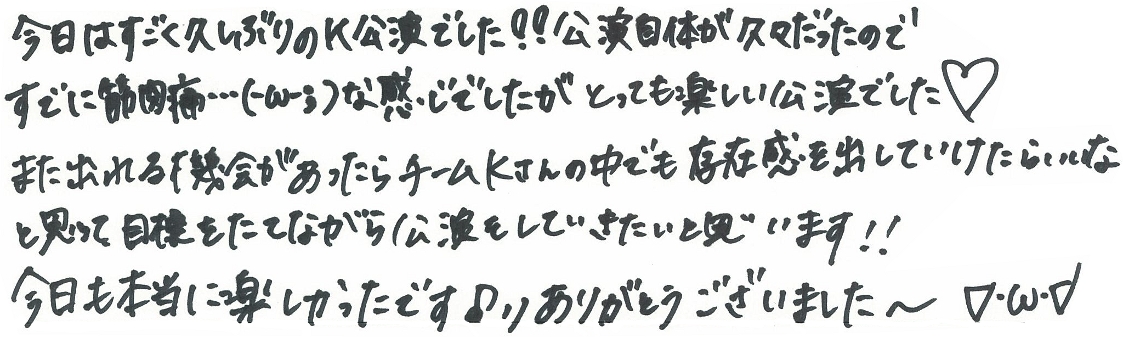 今日はすごく久しぶりのK公演でした!!公演自体が久々だったので
すでに筋肉痛…(-ω-;)な感じでしたがとっても楽しい公演でした♡
また出れる機会があったらチームKさんの中でも存在感を出していけたらいいな
と思って目標をたてながら公演をしていきたいと思います!!
今日も本当に楽しかったです♪」ありがとうございました〜 ▽・ω・▽